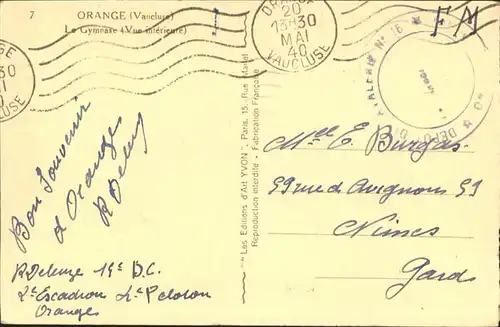 7 ORANGE (Vaucluse)
Le Gymnase (Vue intérieure)
ORANGE
20
13H30
MAI
40
VAUCLUSE
F M
DEPOT DE CAVALERIE N° 16
Bon Souvenir
d'Oranges
R Deleuze
RDeleuze 19e D.C.
2e Escadron 4e Peloton
Oranges
"Les Editions d'Art YVON", Paris, 15, Rue Martel
Reproduction interdite - Fabrication Française
Mlle E. Burgas
59 rue d'Avignons 59
Nimes
Gard